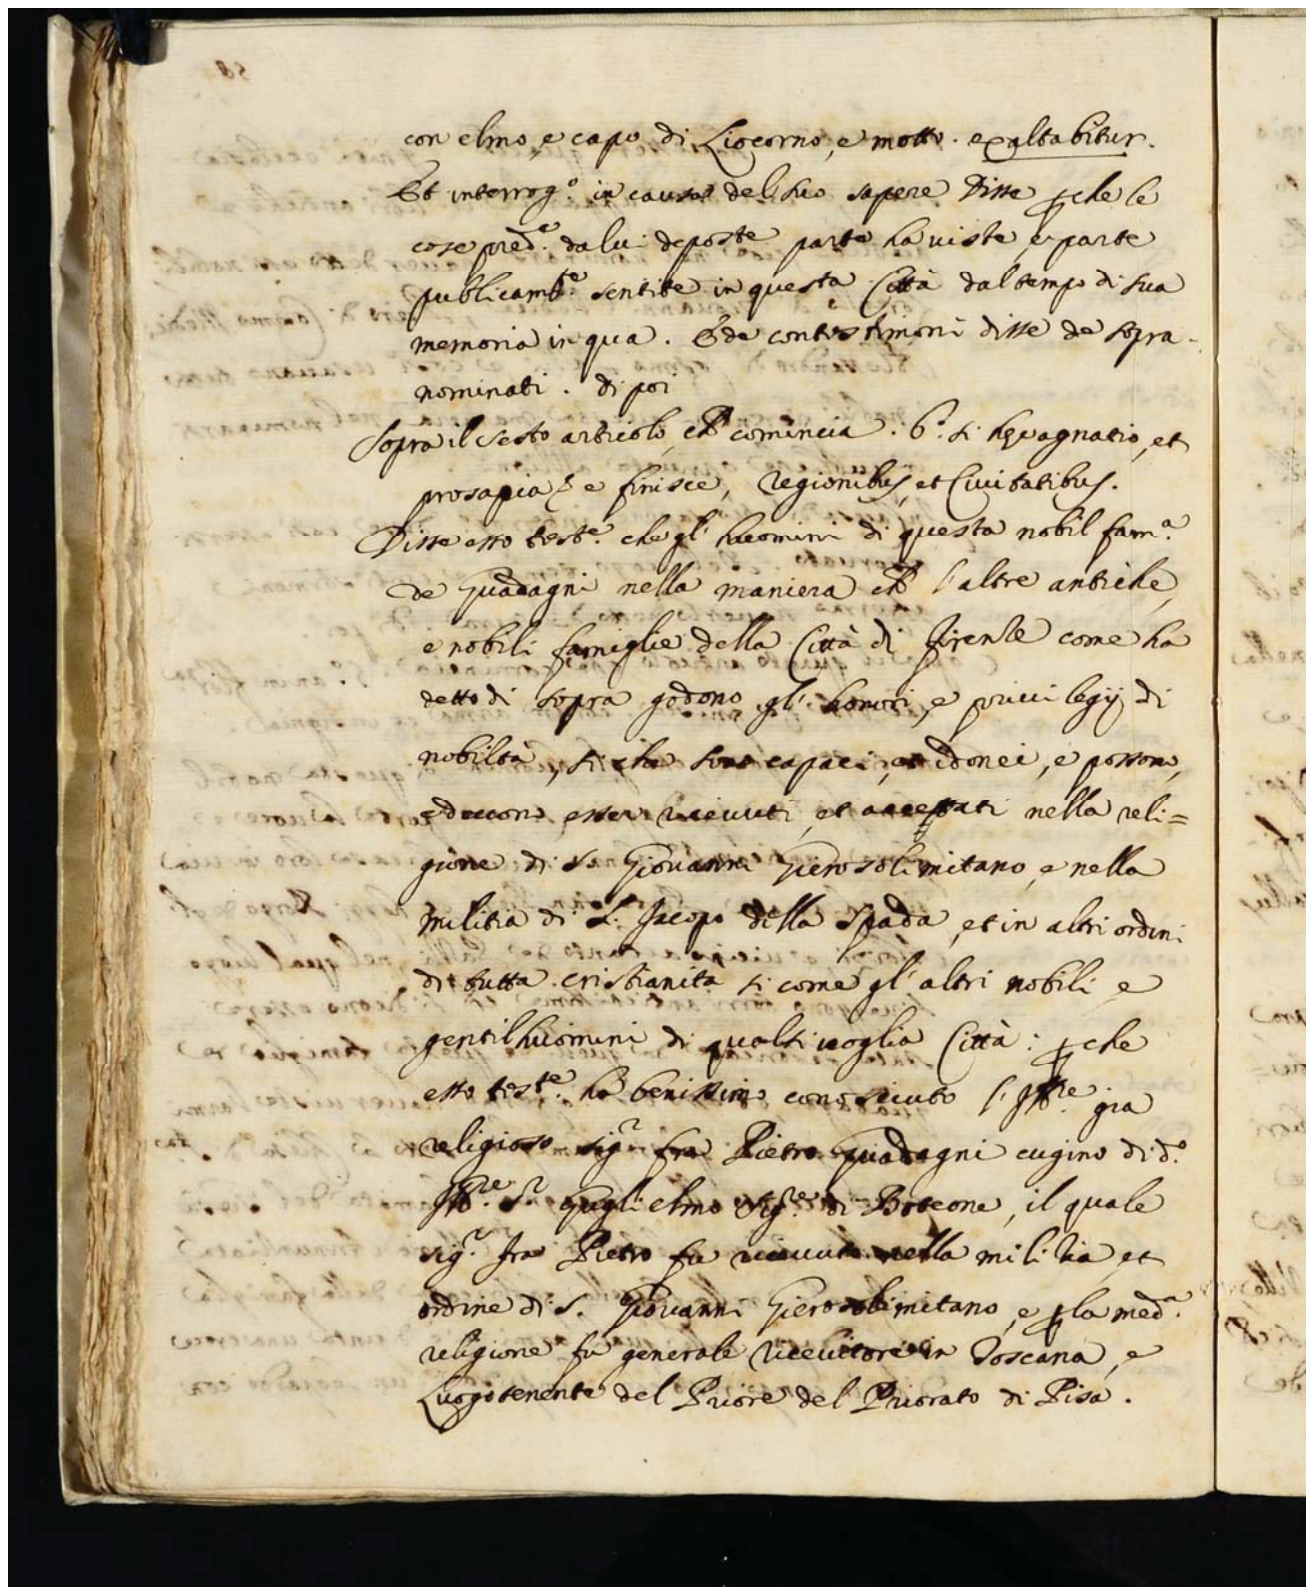 con elmo, e capo di Liocorno, e motto. exaltabitur.
Et interrog.º in causa del suo sapere Disse p che le
cose pred.e da lui deposte parte ha viste, e parte
publicamt.e sentite in questa Città dal tempo di sua
memoria in qua. Et de contestimoni disse de sopra-
nominati. di poi
Sopra il sesto articolo, ch comincia. 6.º si agnatio, et
prosapia e finisce, regionibus, et Civitatibus.
Disse esso test.e che gl' huomini di questa nobil fam.a
de Guadagni nella maniera ch l'altre antiche,
e nobili famiglie della Città di firenze come ha
detto di sopra godono gl' honori, e privilegij di
nobiltà, si che sono capaci, et idonei, e possono,
e devono esser ricevuti, et accettati nella reli=
gione di S. Giovanni Gierosolimitano, e nella
militia di S. Jacopo della Spada, et in altri ordini
di tutta cristianità si come gl' altri nobili e
gentilhuomini di qualsivoglia Città: p che
esso test.e ha benissimo conosciuto l' Ill.re già
religioso sig.r fra Pietro Guadagni cugino di d.º
Ill.re S.r Guglielmo Sig.re di Boteone, il quale
sig.r fra Pietro fu ricevuto nella militia, et
ordine di S. Giovanni Gierosolimitano, e p la med.a
religione fu generale ricevitore in Toscana, e
Luogotenente del Priore del Priorato di Pisa.